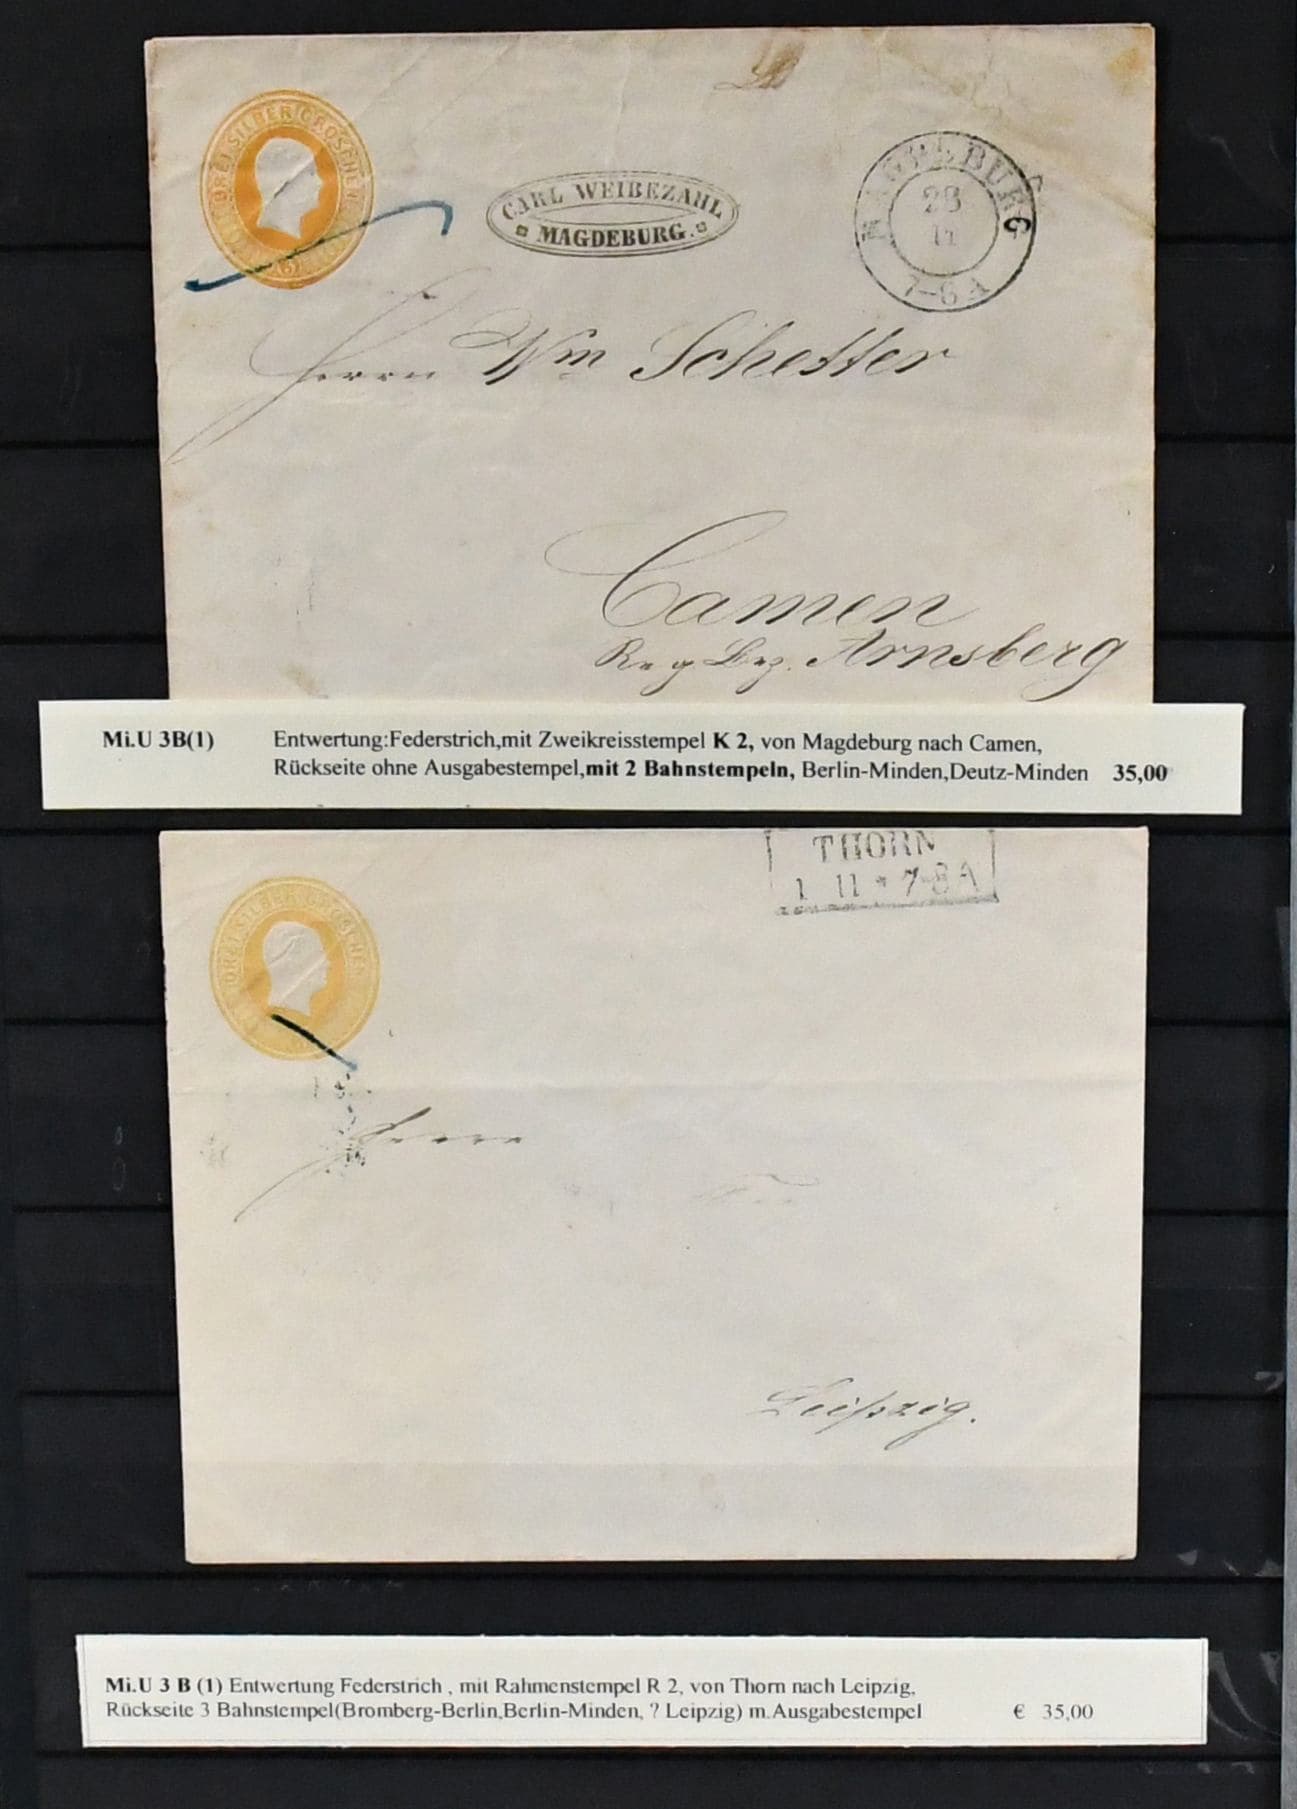 DREI SILBER GROSCHEN
CARL WEIBEZAHL
MAGDEBURG.
MAGDEBURG
23
11
7-8 A
Herrn Wm Schetter
Camen
Reg Bez. Arnsberg
Mi.U 3B(1) Entwertung:Federstrich,mit Zweikreisstempel K 2, von Magdeburg nach Camen,
Rückseite ohne Ausgabestempel,mit 2 Bahnstempeln, Berlin-Minden,Deutz-Minden 35,00
THORN
1 11 * 7-8 A
DREI SILBER GROSCHEN
Herrn
Leipzig.
Mi.U 3 B (1) Entwertung Federstrich , mit Rahmenstempel R 2, von Thorn nach Leipzig,
Rückseite 3 Bahnstempel(Bromberg-Berlin,Berlin-Minden, ? Leipzig) m.Ausgabestempel € 35,00